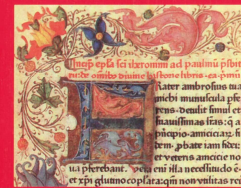 Incip epla sci iheronimi ad paulinū p̄sbit
de omībꝫ diuine historie libris · ca · pmū
Rater ambrosius tua
michi munuscula pfe
rens · detulit simul et
suauissimas lr̄as : q̄ a
pncipio amiciciaꝝ · fi
dem pbate iam fidei
et veteris amicicie no
ua pferebant · Uera eni illa necessitudo e
et xp̄i glutino copulata : qm̄ non vtilitas re